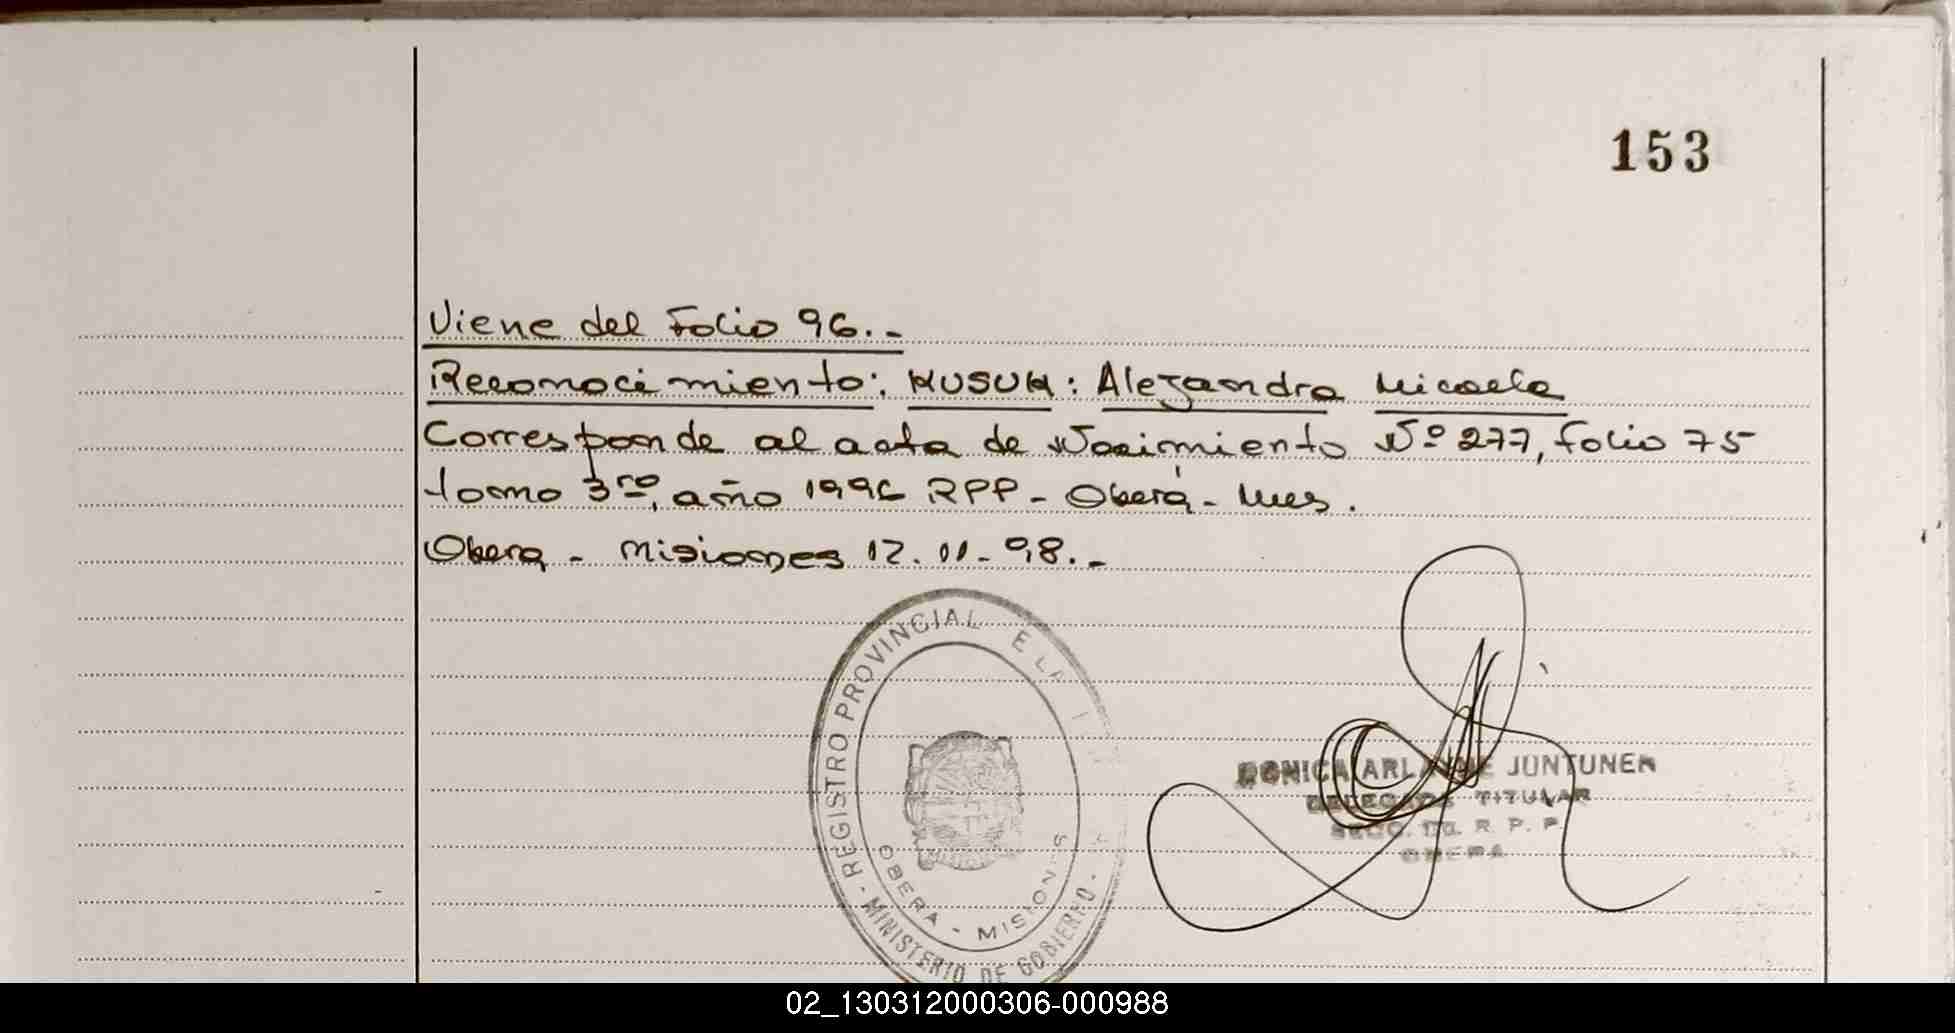 153
Viene del Folio 96.-
Reconocimiento: KUSUK: Alejandra Micaela
Corresponde al acta de Nacimiento Nº 277, Folio 75
tomo 3ro, año 1996 RPP - Oberá - Mnes.
Obera - Misiones 12.11-98.-
REGISTRO PROVINCIAL E LA
OBERA - MISION S
- MINISTERIO DE GOBIERNO -
JUNTUNEN
DELEGADA TITULAR
SECC. R. P. P.
OBERA
02_130312000306-000988